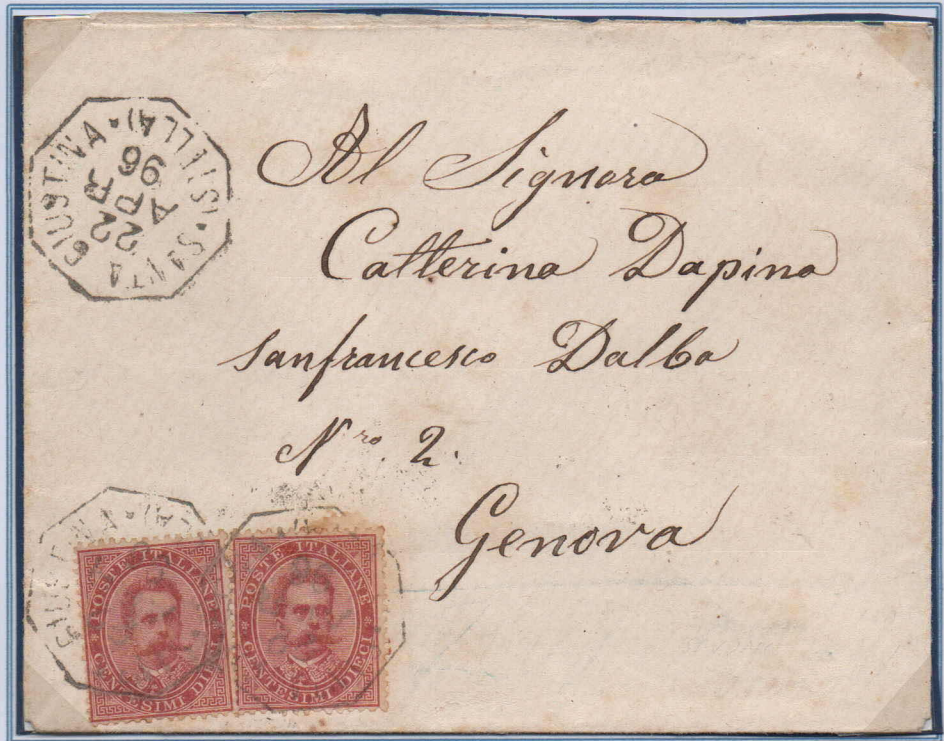 SANTA GIUSTINA (STELLA)
22
APR
96
Al Signora
Catterina Dapino
Sanfrancesco Dalbo
Nro 2.
Genova
GIUSTINA
POSTE ITALIANE
CENTESIMI DIECI
POSTE ITALIANE
CENTESIMI DIECI